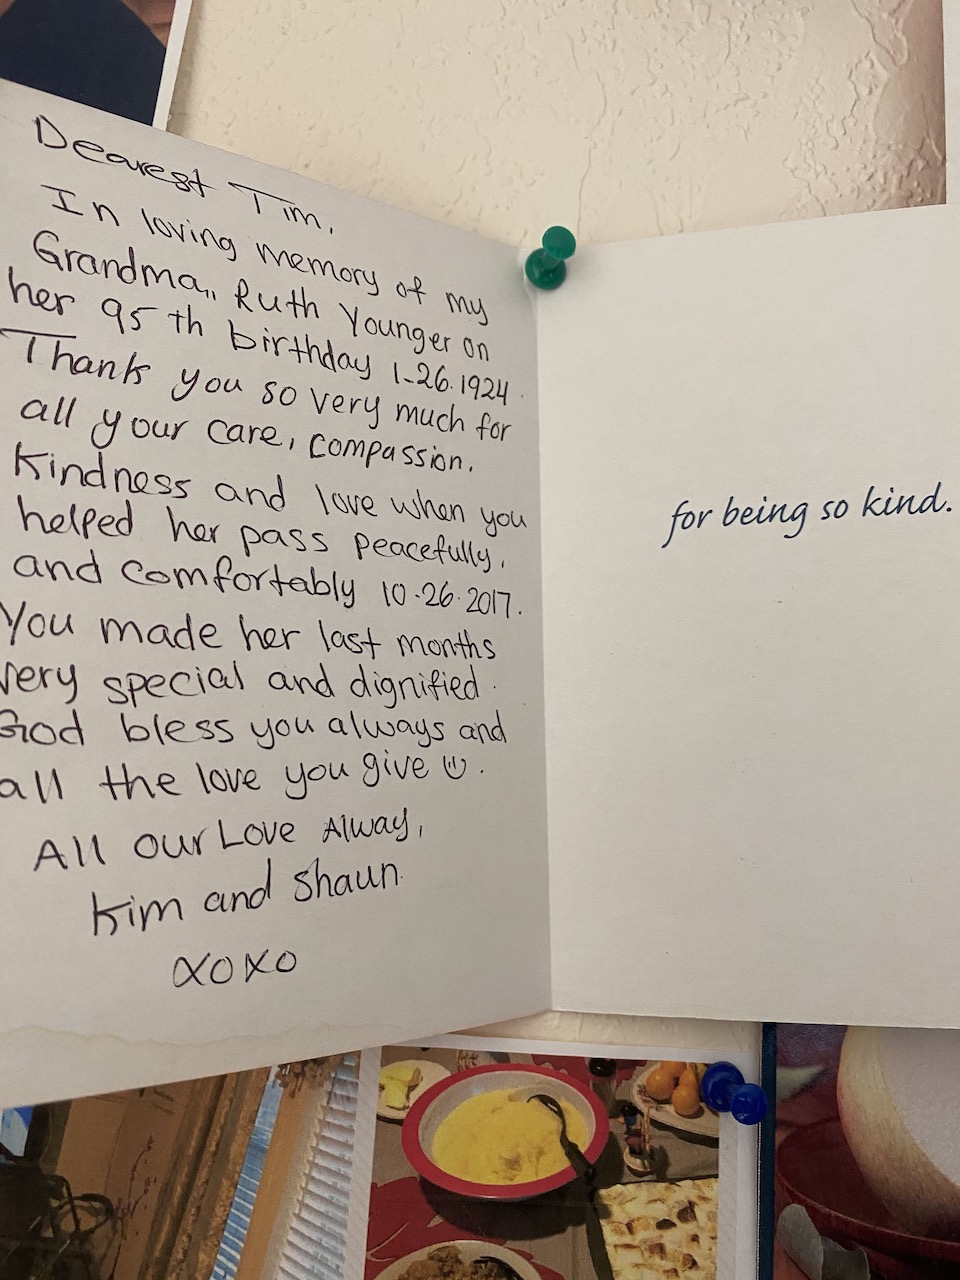 Dearest Tim,
In loving memory of my
Grandma,, Ruth Younger on
her 95 th birthday 1-26.1924.
Thank you so very much for
all your care, compassion,
kindness and love when you
helped her pass peacefully,
and comfortably 10.26.2017.
You made her last months
very special and dignified.
God bless you always and
all the love you give ☺.
All our Love Alway,
Kim and Shaun.
XOXO
for being so kind.